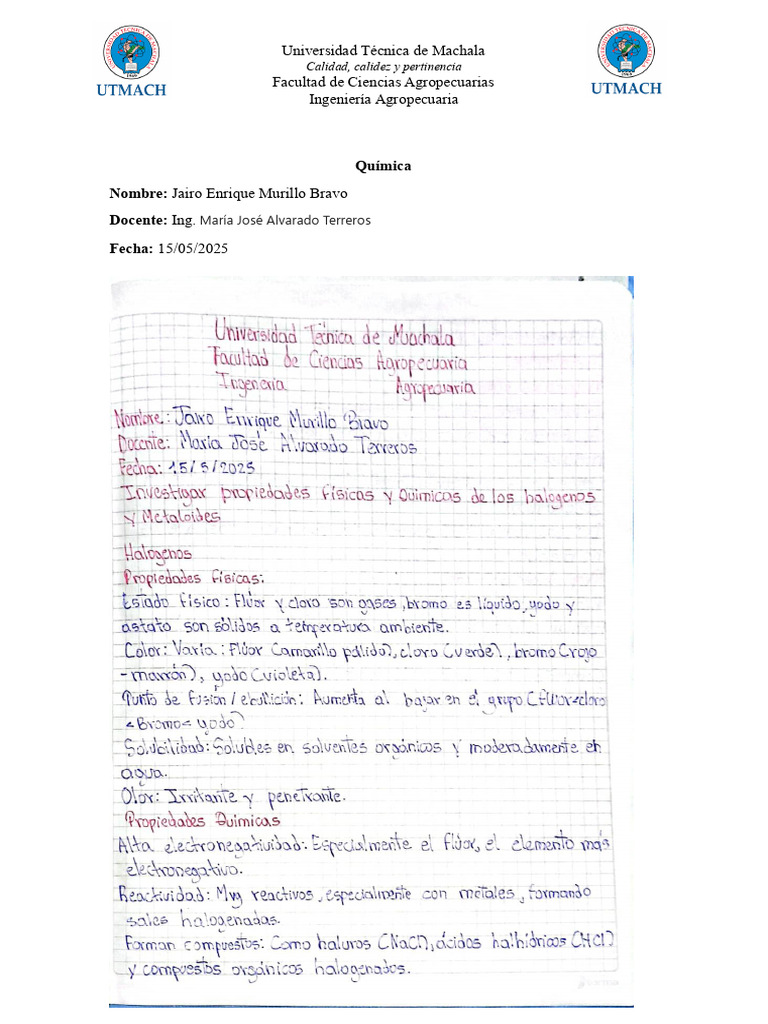 Universidad Técnica de Machala
Calidad, calidez y pertinencia
Facultad de Ciencias Agropecuarias
Ingeniería Agropecuaria
UTMACH
UTMACH
Química
Nombre: Jairo Enrique Murillo Bravo
Docente: Ing. María José Alvarado Terreros
Fecha: 15/05/2025
Universidad Técnica de Machala
Facultad de Ciencias Agropecuaria
Ingeneria Agropecuaria
Nombre: Jairo Enrique Murillo Bravo
Docente: María José Alvarado Terreros
Fecha: 15/5/2025
Investigar propiedades físicas y Químicas de los halogenos
y Metaloides
Halogenos
Propiedades físicas:
Estado físico: Flúor y cloro son gases, bromo es líquido, yodo y
astato son sólidos a temperatura ambiente.
Color: Varia: Flúor (amarillo pálido), cloro (verde), bromo (rojo
-marrón), yodo (violeta).
Punto de fusión/ebullición: Aumenta al bajar en el grupo (flúor<cloro
<Bromo<yodo)
Solubilidad: Solubles en solventes orgánicos y moderadamente en
agua.
Olor: Irritante y penetrante.
Propiedades Quimicas
Alta electronegatividad: Especialmente el flúor, el elemento más
electronegativo.
Reactividad: Muy reactivos, especialmente con metales, formando
sales halogenadas.
Forman compuestos: Como haluros (NaCl), ácidos halhídricos (HCl)
y compuestos orgánicos halogenados.